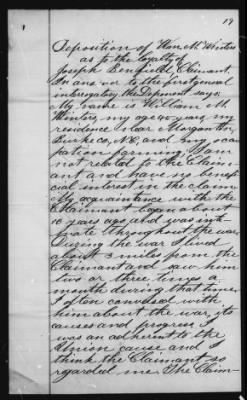 19
Deposition of Wm. M. Winters
as to the loyalty of
Joseph Benfield, Claimant.
In answer to the first general
interrogatory, the Deponent says:
My name is William M.
Winters, my age 40 years, my
residence near Morganton,
Burke Co, N.C., and my occu
pation farming. I am
not related to the Claim
ant and have no benefi
cial interest in the claim
My acquaintance with the
Claimant began about
16 years ago, and was inti
mate throughout the war.
During the war I lived
about 3 miles from the
Claimant and saw him
two or three times a
month during that time.
I often conversed with
him about the war, its
causes and progress. I
was an adherent to the
Union cause and I
think the Claimant so
regarded me. The Claim